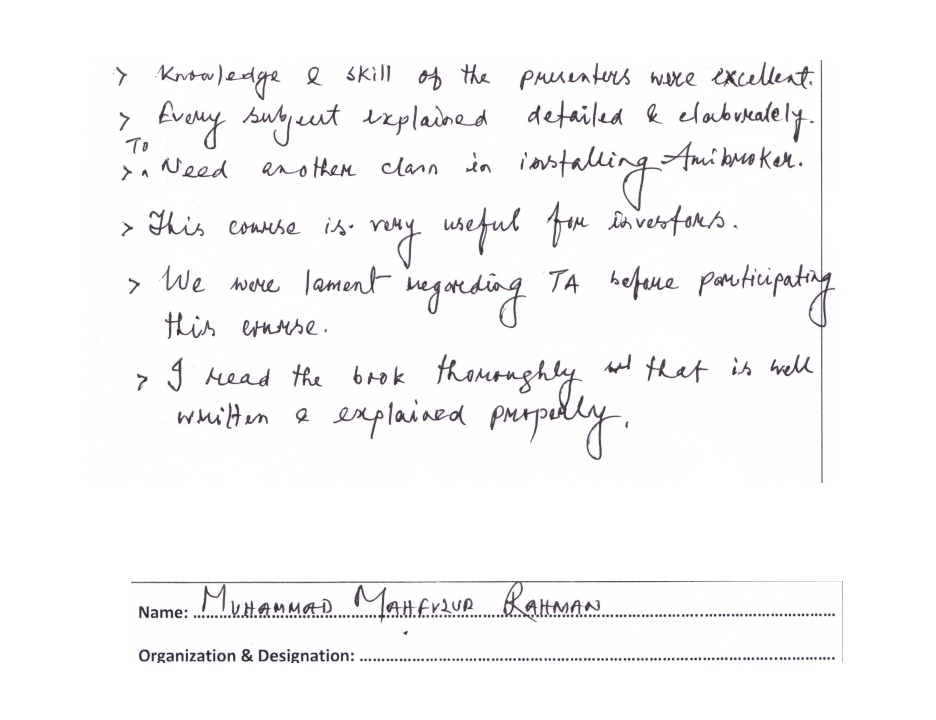 > Knowledge & skill of the presenters were excellent.
> Every subject explained detailed & elaborately.
To
> ^ Need another class in installing Amibroker.
> This course is very useful for investors.
> We were lament regarding TA before participating
this course.
> I read the book thoroughly that is well
written & explained properly.
Name: MUHAMMAD MAHFUZUR RAHMAN
Organization & Designation: